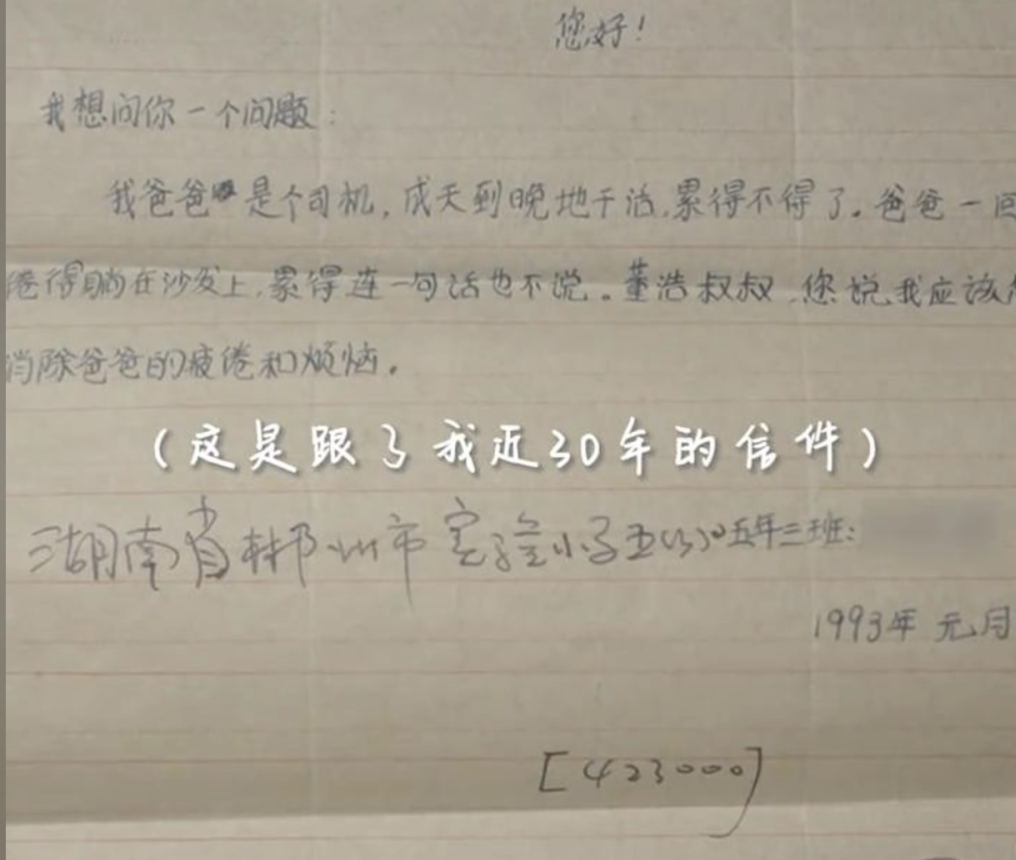 您好!
我想问你一个问题:
我爸爸是个司机,成天到晚地干活,累得不得了。爸爸一回
倦得躺在沙发上,累得连一句话也不说。董浩叔叔,您说我应该
消除爸爸的疲倦和烦恼。
(这是跟了我近30年的信件)
湖南省郴州市实验小学五(3)五年三班:
1993年元月
[423000]